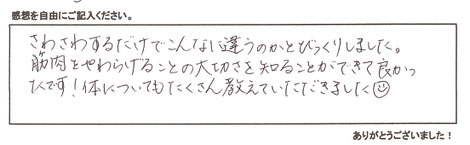 感想を自由にご記入ください。
さわさわするだけでこんなに違うのかとびっくりしました。
筋肉をやわらげることの大切さを知ることができて良かっ
たです!体についてもたくさん教えていただきました☺
ありがとうございました!